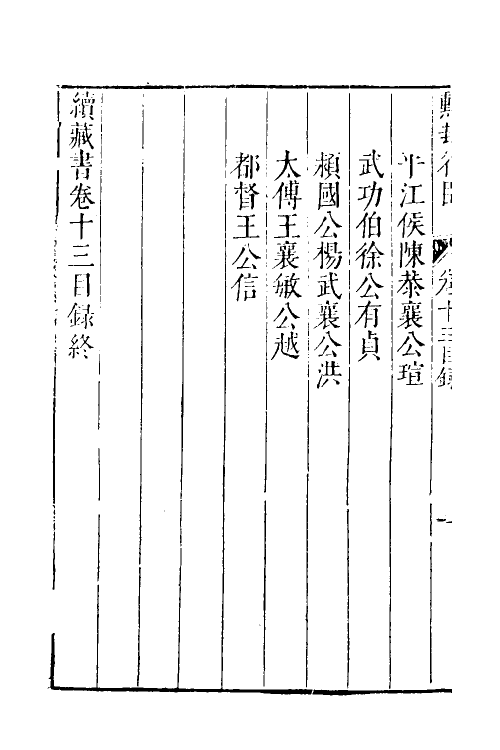 平江侯陳恭襄公瑄
武功伯徐公有貞
潁國公楊武襄公洪
太傅王襄敏公越
都督王公信
續藏書卷十三目錄終